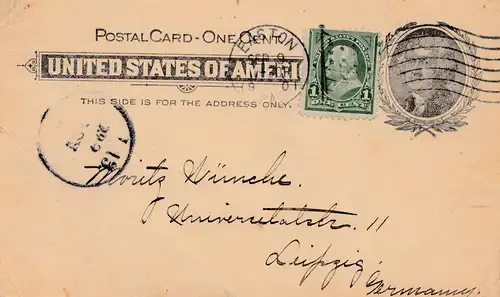 POSTAL CARD - ONE CENT.
UNITED STATES OF AMERI
THIS SIDE IS FOR THE ADDRESS ONLY.
EASTON
1 1
ONE CENT
Moritz Wünsche.
Universitätstr. 11
Leipzig.
Germany.